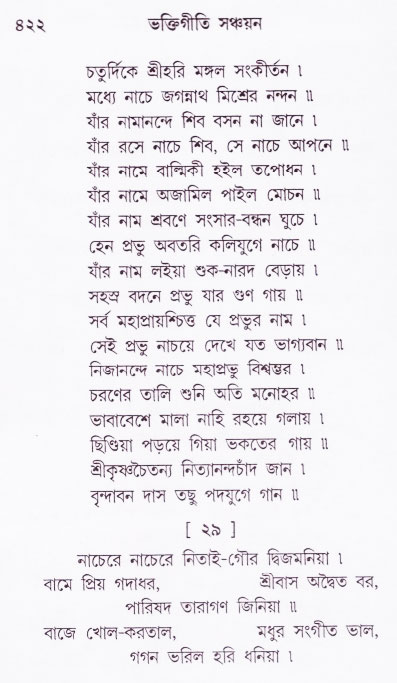 ৪২২ ভক্তিগীতি সঞ্চয়ন
চতুর্দিকে শ্রীহরি মঙ্গল সংকীর্তন ৷
মধ্যে নাচে জগন্নাথ মিশ্রের নন্দন ॥
যাঁর নামানন্দে শিব বসন না জানে ৷
যাঁর রসে নাচে শিব, সে নাচে আপনে ॥
যাঁর নামে বাল্মিকী হইল তপোধন ৷
যাঁর নামে অজামিল পাইল মোচন ॥
যাঁর নাম শ্রবণে সংসার-বন্ধন ঘুচে ৷
হেন প্রভু অবতরি কলিযুগে নাচে ॥
যাঁর নাম লইয়া শুক-নারদ বেড়ায় ৷
সহস্র বদনে প্রভু যার গুণ গায় ॥
সর্ব মহাপ্রায়শ্চিত্ত যে প্রভুর নাম ৷
সেই প্রভু নাচয়ে দেখে যত ভাগ্যবান ॥
নিজানন্দে নাচে মহাপ্রভু বিশ্বম্ভর ৷
চরণের তালি শুনি অতি মনোহর ॥
ভাবাবেশে মালা নাহি রহয়ে গলায় ৷
ছিণ্ডিয়া পড়য়ে গিয়া ভকতের গায় ॥
শ্রীকৃষ্ণচৈতন্য নিত্যানন্দচাঁদ জান ৷
বৃন্দাবন দাস তছু পদযুগে গান ॥
[ ২৯ ]
নাচেরে নাচেরে নিতাই-গৌর দ্বিজমনিয়া ৷
বামে প্রিয় গদাধর, শ্রীবাস অদ্বৈত বর,
পারিষদ তারাগণ জিনিয়া ॥
বাজে খোল-করতাল, মধুর সংগীত ভাল,
গগন ভরিল হরি ধনিয়া ৷